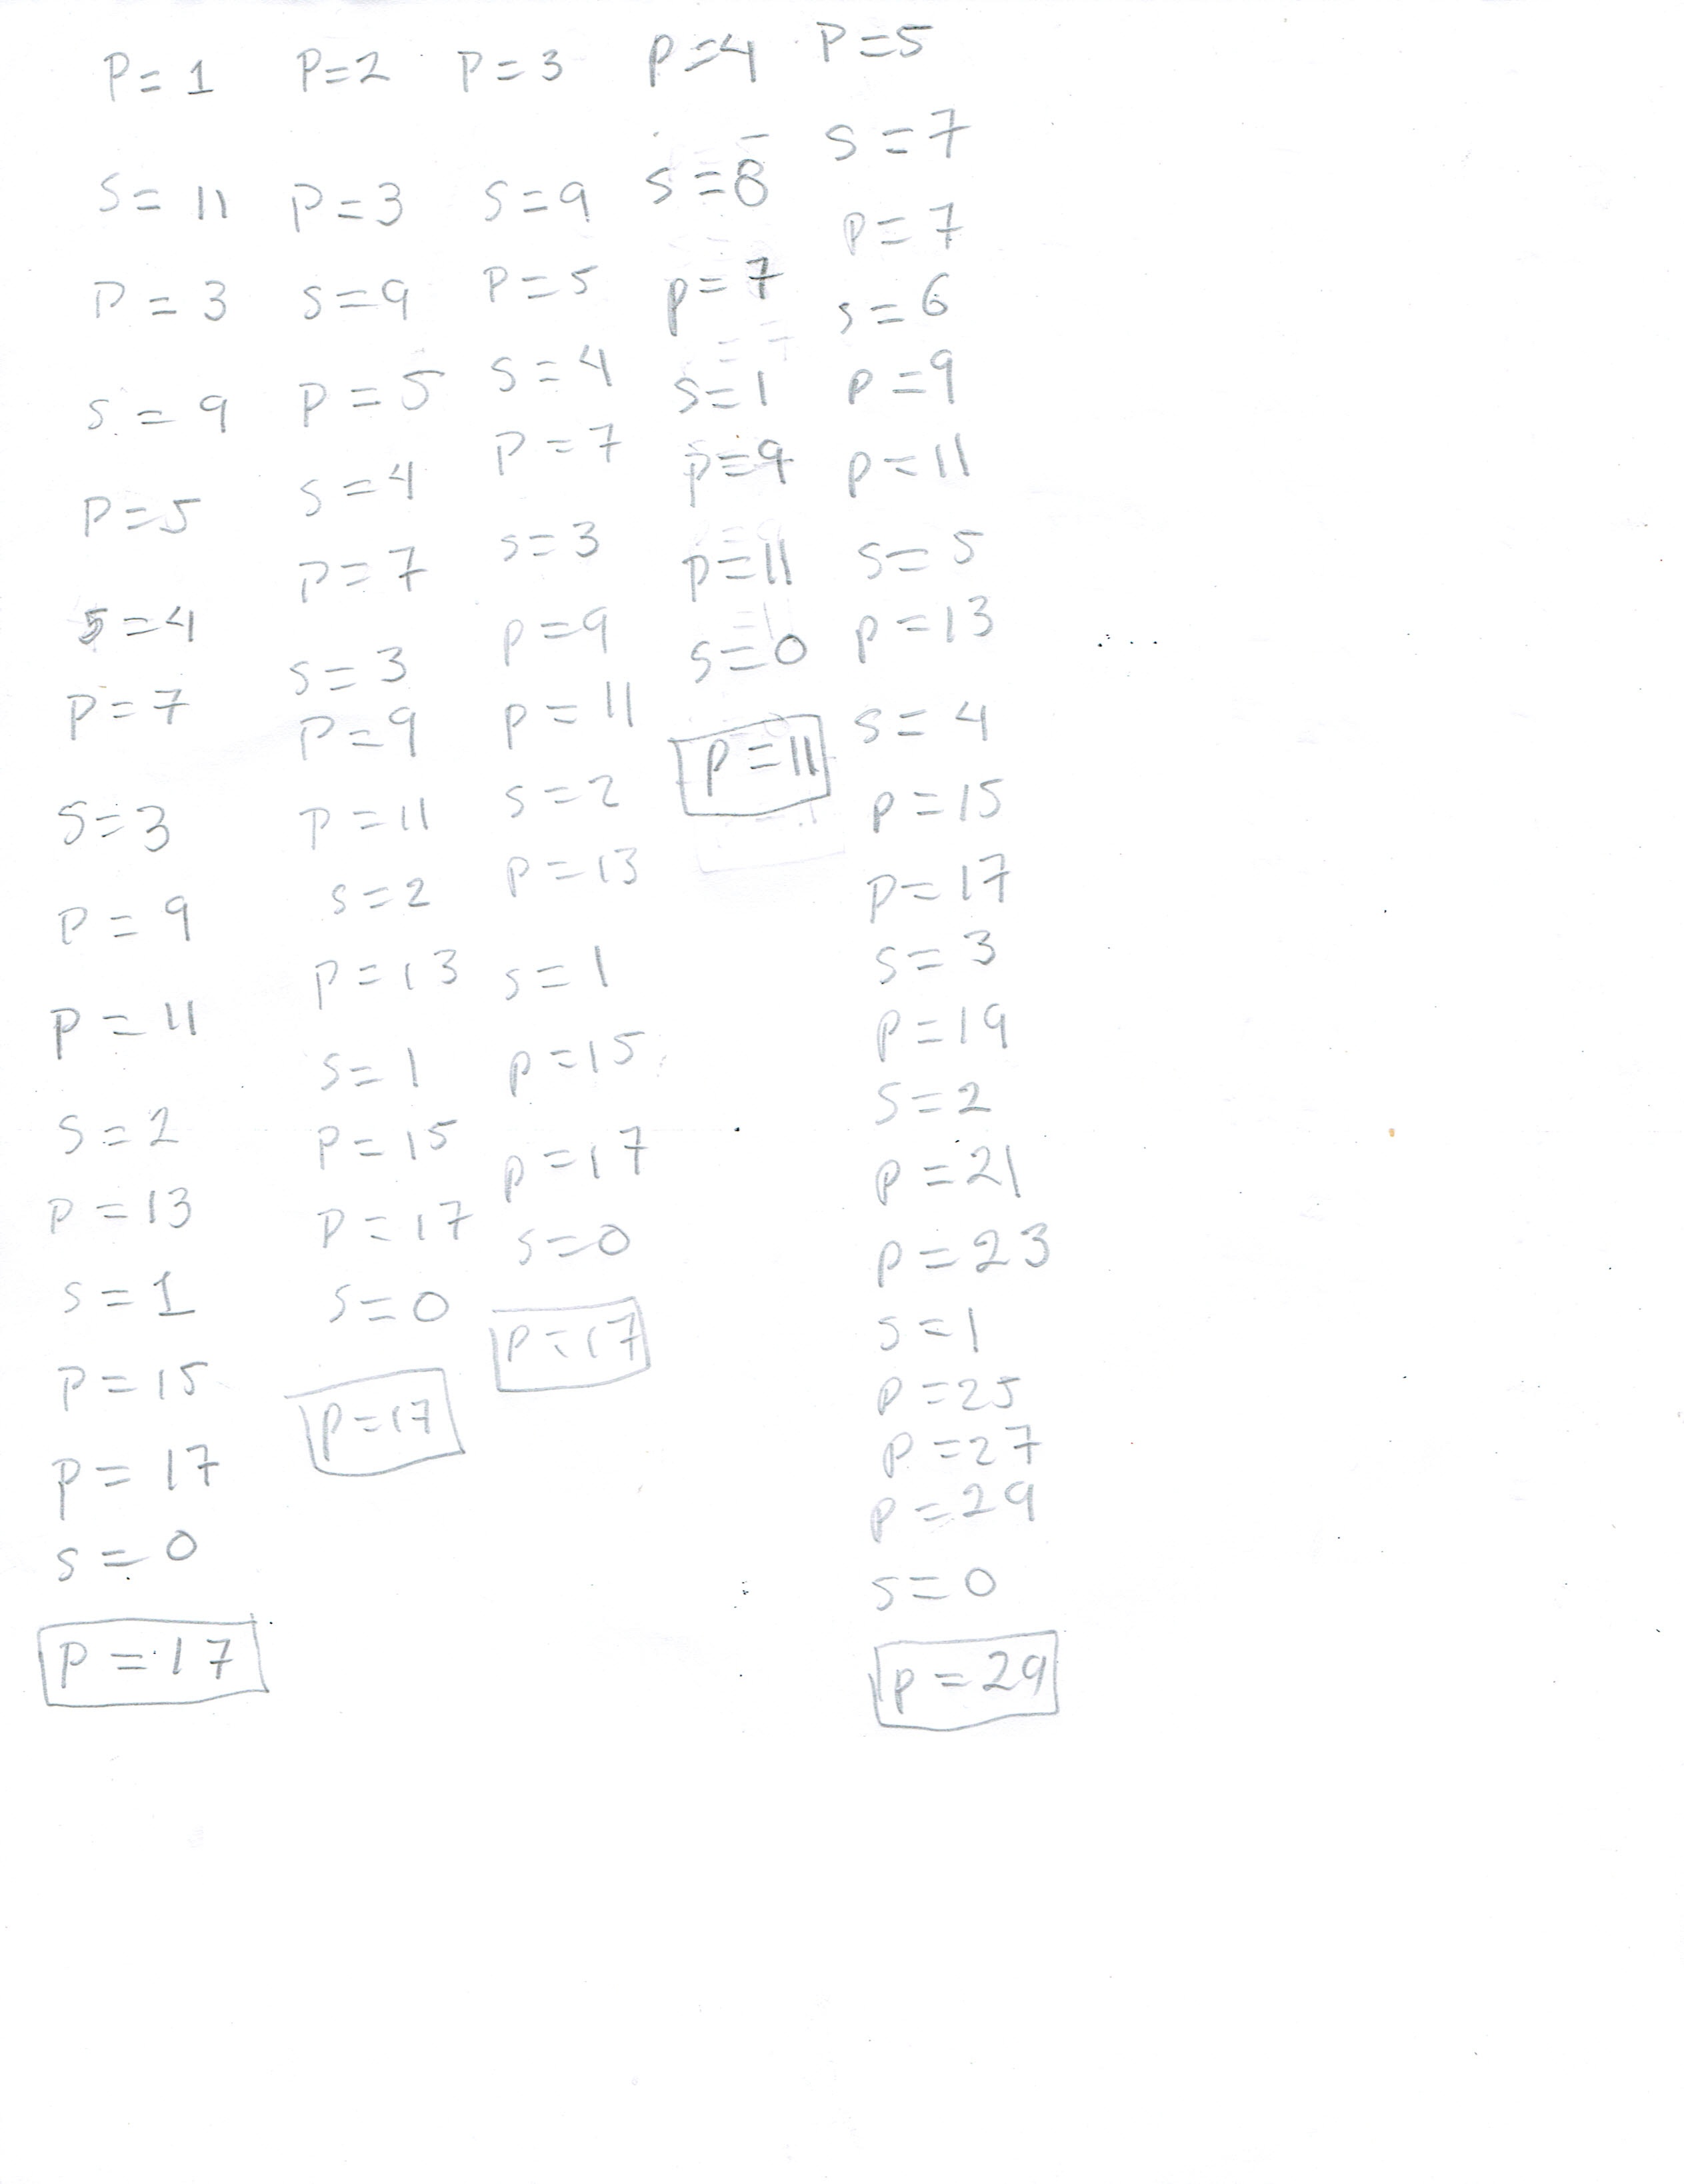 P=1
S=11
P=3
S=9
P=5
S=4
P=7
S=3
P=9
P=11
S=2
P=13
S=1
P=15
P=17
S=0
P=17
P=2
P=3
S=9
P=5
S=4
P=7
S=3
P=9
P=11
S=2
P=13
S=1
P=15
P=17
S=0
P=17
P=3
S=9
P=5
S=4
P=7
S=3
P=9
P=11
S=2
P=13
S=1
P=15
P=17
S=0
P=17
P=4
S=8
P=7
S=1
P=9
P=11
S=0
P=11
P=5
S=7
P=7
S=6
P=9
P=11
S=5
P=13
S=4
P=15
P=17
S=3
P=19
S=2
P=21
P=23
S=1
P=25
P=27
P=29
S=0
P=29